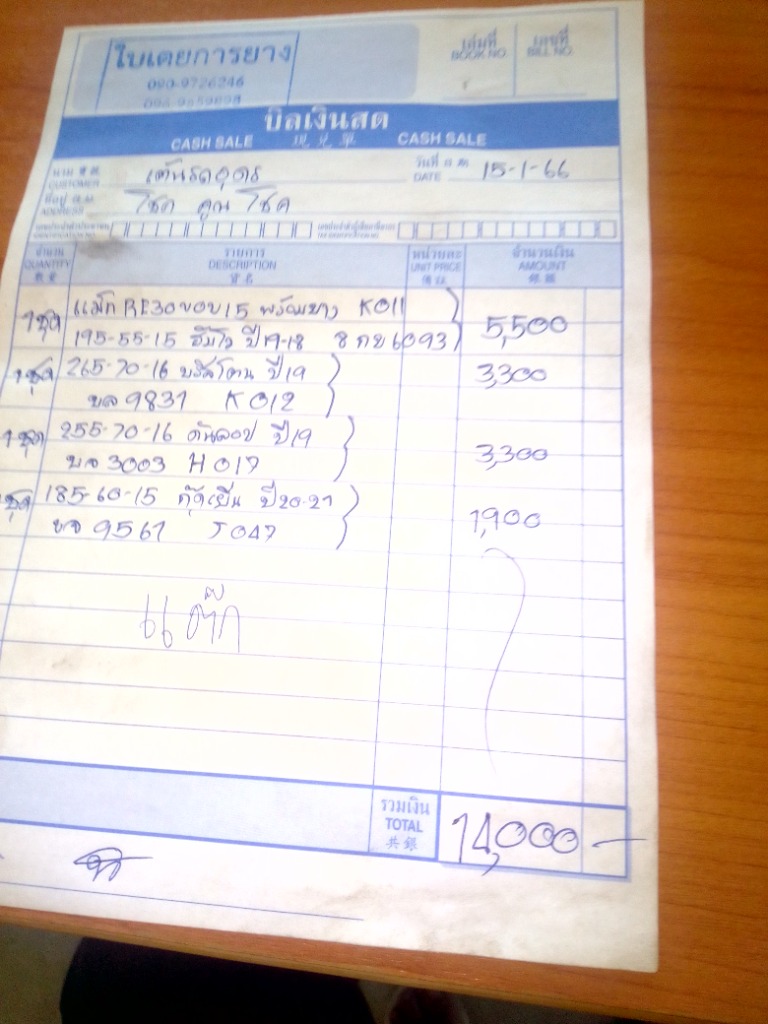 ใบเตยการยาง
090-9726246
เล่มที่ เลขที่
BOOK NO. BILL NO.
บิลเงินสด
CASH SALE 現兌單 CASH SALE
นาม วันที่
CUSTOMER เต้นรถอุดร DATE 15-1-66
ที่อยู่
ADDRESS โชค คูณ โชค
จำนวน รายการ หน่วยละ จำนวนเงิน
QUANTITY DESCRIPTION UNIT PRICE AMOUNT
1ชุด แม็ก RE30 ขอบ 15 พร้อมยาง K011
195-55-15 ปี19-18 8 กข 6093 5,500
1ชุด 265-70-16 บริสโตน ปี19 3,300
บล 9831 K012
1ชุด 255-70-16 ดันลอป ปี19
บจ 3003 H017 3,300
1ชุด 185-60-15 กู๊ดเยียร ปี20-21
9561 J047 1,900
แต๊ก
รวมเงิน
TOTAL 14,000 -
共銀